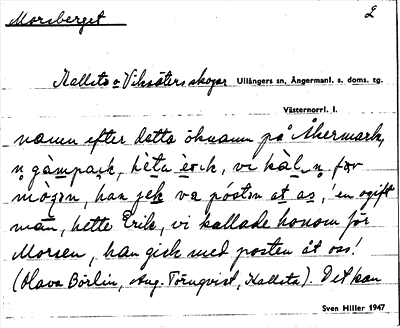 Morsberget
2
Kallsta o Viksäters skogar
Ullångers sn, Ångermanl. s. doms. tg.
Västernorrl. l.
namn efter detta öknamn på Åkermark,
mögon, han gek va póstn at as, 'en ogift
man, hette Erik, vi kallade honom för
Morsen, han gick med posten åt oss!
(Olava Börlin, Aug. Törnqvist, Kallsta). Det kan
Sven Hiller 1947